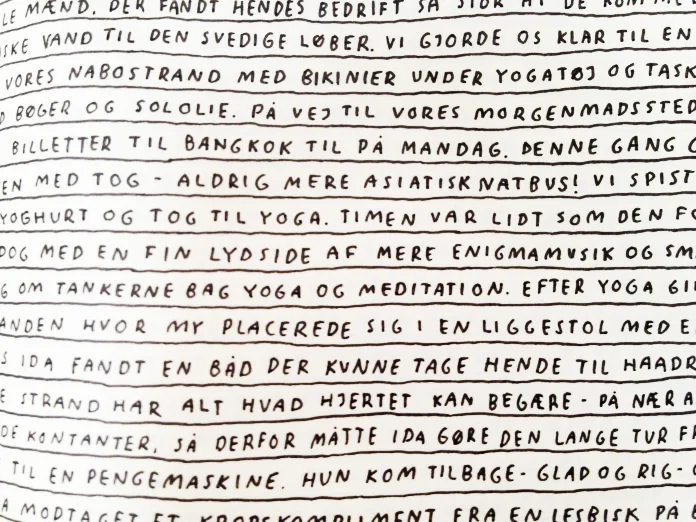 LE MÆND. DER FANDT HENDES BEDRIFT SÅ STOR AT DE
SKE VAND TIL DEN SVEDIGE LØBER. VI GJORDE OS KLAR TIL EN
VORES NABOSTRAND MED BIKINIER UNDER YOGATØJ OG TASK
D BØGER OG SOLOLIE. PÅ VEJ TIL VORES MORGENMADSSTED
BILLETTER TIL BANGKOK TIL PÅ MANDAG. DENNE GANG
EN MED TOG - ALDRIG MERE ASIATISK NATBUS! VI SPIST
YOGHURT OG TOG TIL YOGA. TIMEN VAR LIDT SOM DEN FO
DOG MED EN FIN LYDSIDE AF MERE ENIGMAMUSIK OG SM
G OM TANKERNE BAG YOGA OG MEDITATION. EFTER YOGA GI
ANDEN HVOR MY PLACEREDE SIG I EN LIGGESTOL MED E
S IDA FANDT EN BÅD DER KUNNE TAGE HENDE TIL HAADR
E STRAND HAR ALT HVAD HJERTET KAN BEGÆRE - PÅ NÆR A
DE KONTANTER, SÅ DERFOR MÅTTE IDA GØRE DEN LANGE TUR FR
TIL EN PENGEMASKINE. HUN KOM TILBAGE - GLAD OG RIG -
MODTAGET ET KROPSKOMPLIMENT FRA EN LESBISK PÅ